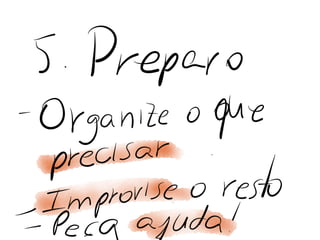 5. Preparo
- Organize o que
precisar
- Improvise o resto
- Peça ajuda!